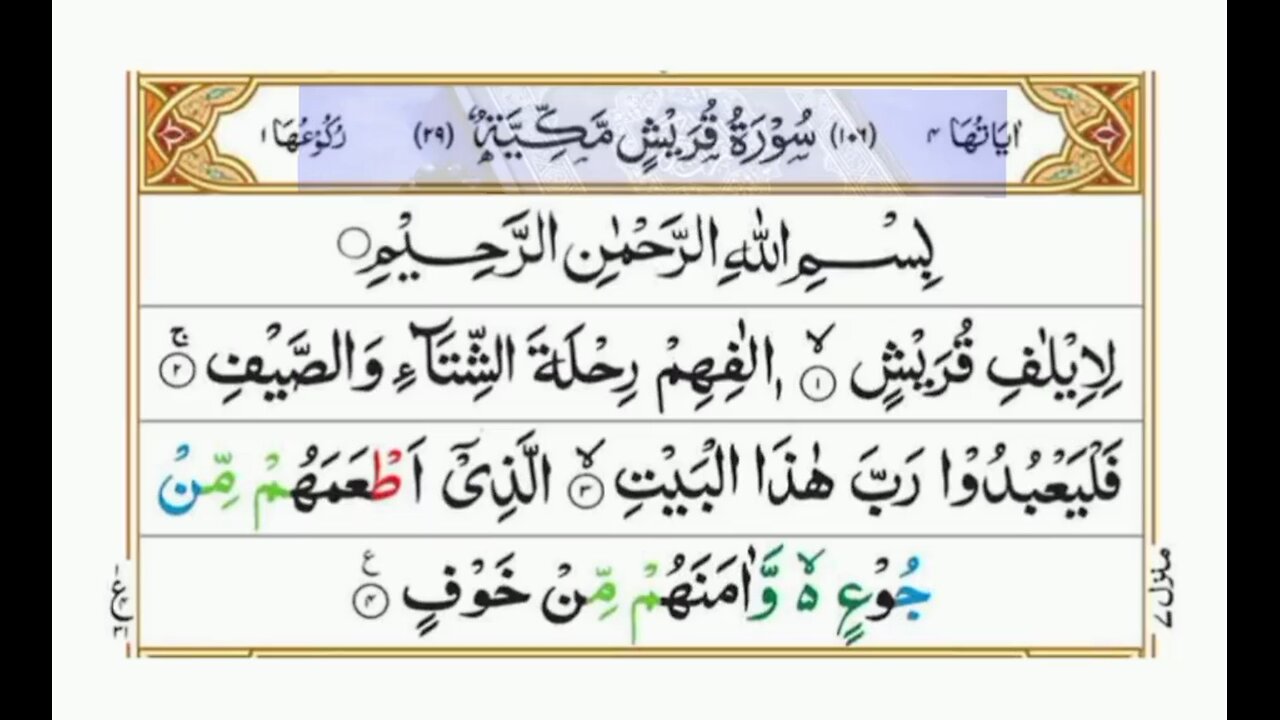 اٰيَاتُهَا ۴ (۱۰۶) سُوْرَةُ قُرَيْشٍ مَّكِّيَّةٌ (۲۹) رُكُوْعُهَا ۱
بِسْمِ اللّٰهِ الرَّحْمٰنِ الرَّحِيْمِ ○
لِاِيْلٰفِ قُرَيْشٍ ۙ‏ ﴿۱﴾ اٖلٰفِهِمْ رِحْلَةَ الشِّتَآءِ وَالصَّيْفِ ۚ‏ ﴿۲﴾
فَلْيَعْبُدُوْا رَبَّ هٰذَا الْبَيْتِ ۙ‏ ﴿۳﴾ الَّذِىْٓ اَطْعَمَهُمْ مِّنْ
جُوْعٍ ۙ۬ وَّاٰمَنَهُمْ مِّنْ خَوْفٍ ﴿۴﴾ ع
منزل ۷
ع